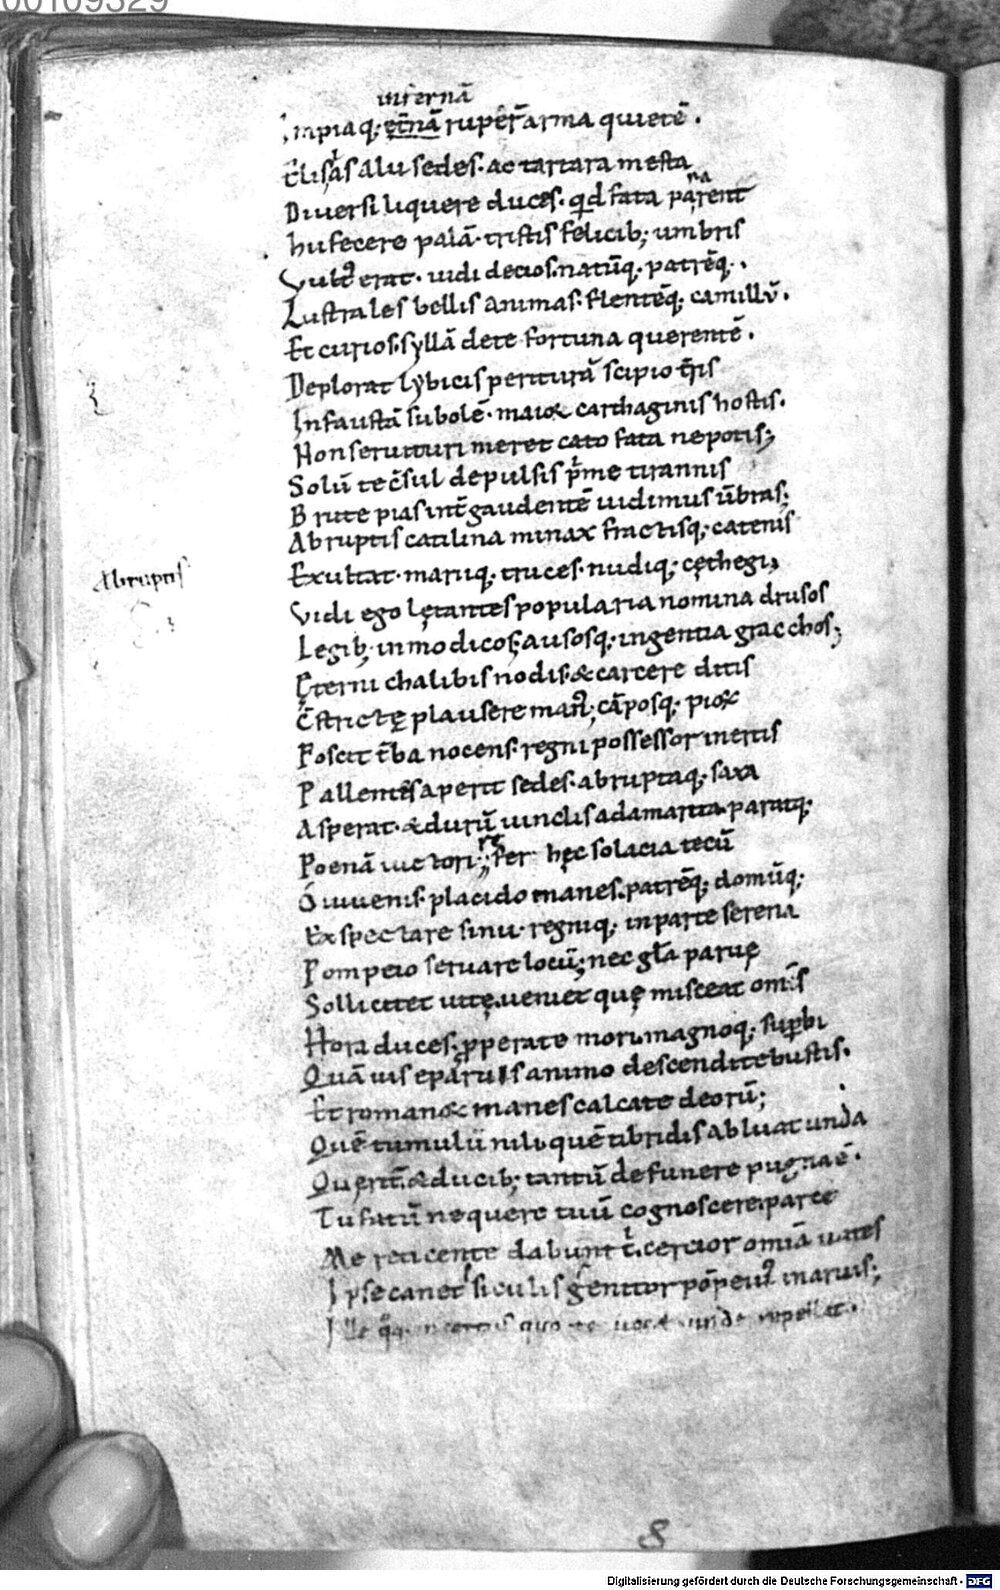 00109329
infernā
Impiaq; et̄nā ruper̄ arma quietē.
Elisas alii sedes. ac tartara mesta
Diuersi liquere duces. qd fata parent
ra
hi fecere palā. tristis felicib; umbris
Vult᷒ erat. uidi decios. natūq. patrēq.
Lustrales bellis animas. flentēq; camillū.
Et curios. syllā de te fortuna querentē.
Deplorat lybicis periturā scipio t̄ris
Infaustā subolē. maior carthaginis hostis.
Non seruituri meret cato fata nepotis;
Solū te c̄sul depulsis p̄me tirannis
Brute pias int̄ gaudentē uidimus ūbras;
Abruptis catilina minax fractisq; catenis
Exultat. mariiq. truces. nudiq; cęthegi;
Abruptis
Vidi ego lętantes popularia nomina drusos
Legib; inmodicos, ausosq; ingentia gracchos;
Ęterni chalibis nodis. & carcere ditis
C̄strictę plausere man᷒; cāposq. pior
Poscit t̄ba nocens. regni possessor inertis
Pallentes aperit sedes. abruptaq; saxa
Asperat. & durū uinclis adamanta. paratq;
Poenā uictori; Refer hęc solacia tecū
O iuuenis. placido manes. patrēq; domūq;
Exspectare sinu. regniq; in parte serena
Pompeio seruare locū; nec gl̄a paruę
Sollicitet uitę. ueniet quę misceat om̄s
Hora duces. pperate mori. magnoq; supbi
Quāuis e paruis animo descendite bustis.
Et romanor manes calcate deorū;
Quē tumulū nili. quē tibridis abluat unda
Querit̄. & ducib; tantū de funere pugna ē.
Tu fatū ne quere tuū cognoscere. parce
Me reticente dabunt t̄. cercior omīa uates
Ipse canet siculis genitor pōpei᷒ in aruis;
Ille qq; incertus quo te uocet unde repellat.
8
Digitalisierung gefördert durch die Deutsche Forschungsgemeinschaft - DFG